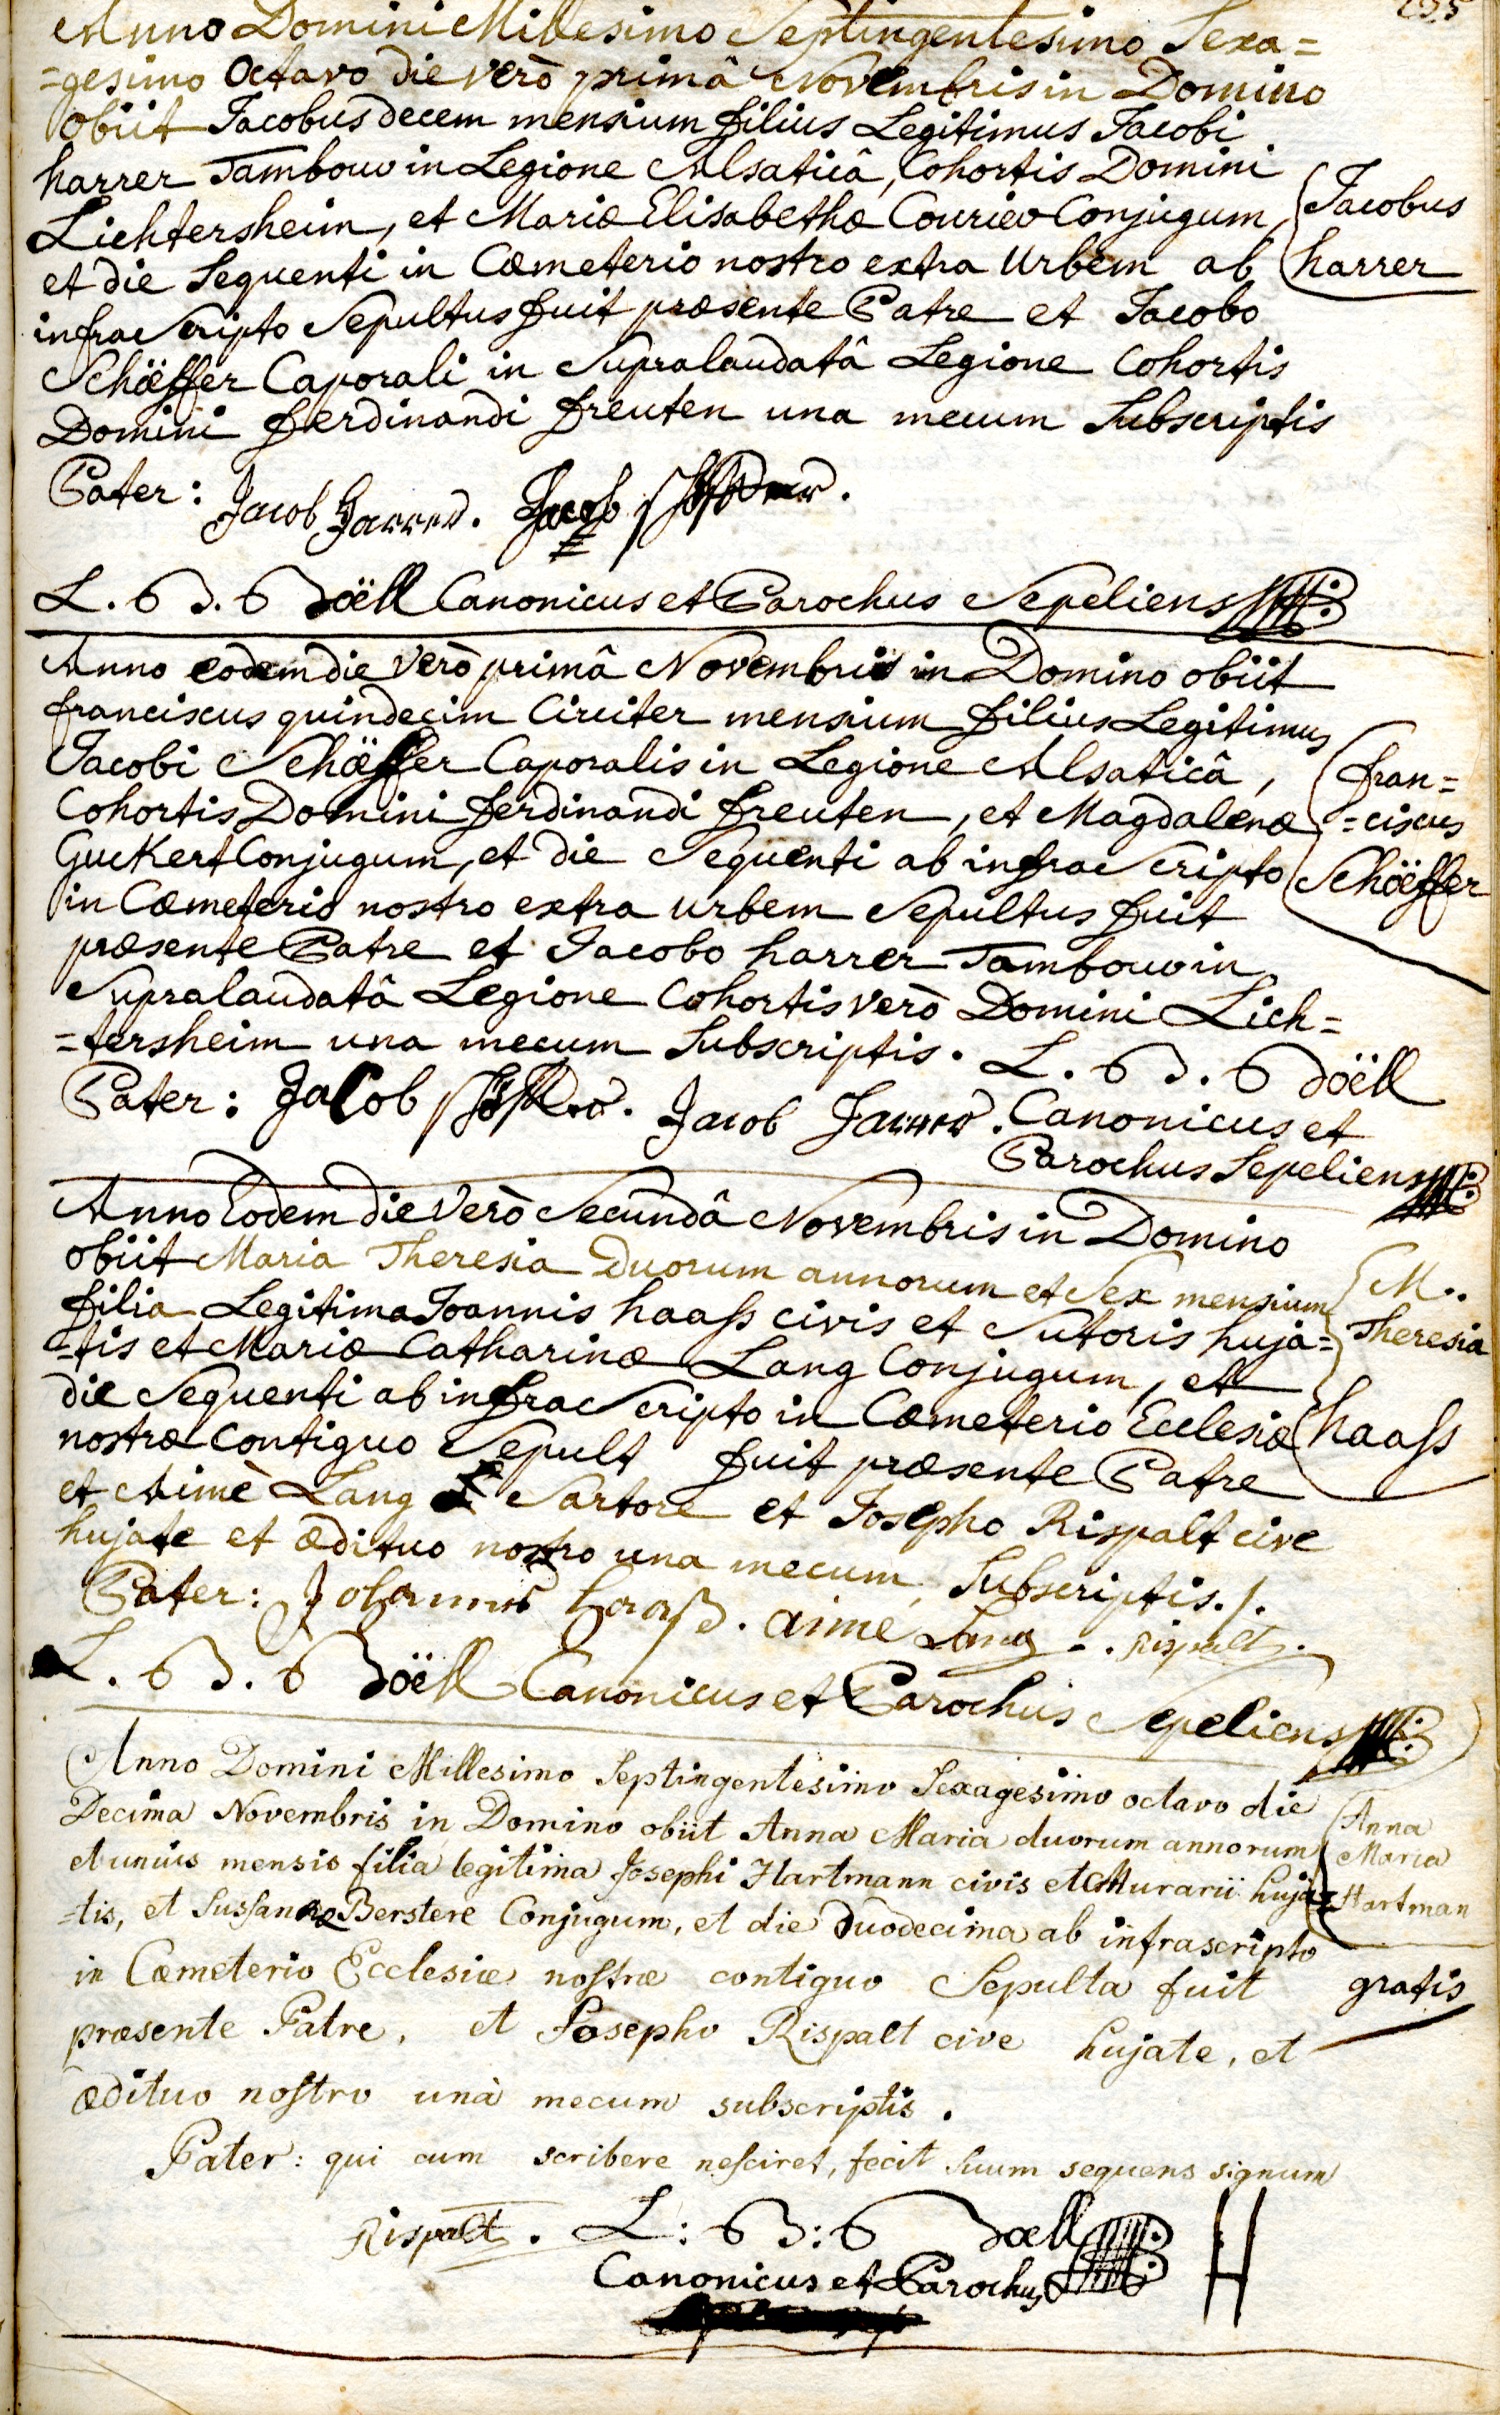 Anno Domini Millesimo Septingentesimo Sexa=
=gesimo Octavo die verò primâ Novembris in Domino
obiit Jacobus decem mensium filius Legitimus Jacobi
harrer Tambour in Legione Alsaticâ, Cohortis Domini
Lichtersheim, et Mariæ Elisabethæ Courier Conjugum,
et die Sequenti in Cœmeterio nostro extra Urbem ab
infrascripto Sepultus fuit præsente Patre et Jacobo
Schöeffer Caporali in Supralaudatâ Legione Cohortis
Domini ferdinandi freuten una mecum Subscriptis
Jacobus
harrer
Pater: Jacob Harrer. Jacob Schöffer.
L. B. Doëll Canonicus et Parochus Sepeliens
Anno eodem die verò primâ Novembris in Domino obiit
franciscus quindecim Circiter mensium filius Legitimus
Jacobi Schöeffer Caporalis in Legione Alsaticâ,
Cohortis Domini ferdinandi freuten, et Magdalenæ
Guckert Conjugum, et die Sequenti ab infrascripto
in Cœmeterio nostro extra urbem Sepultus fuit
præsente Patre et Jacobo harrer Tambour in
Supralaudatâ Legione Cohortis verò Domini Lich=
=tersheim una mecum Subscriptis.
fran=
=ciscus
Schöeffer
Pater: Jacob Schöffer. Jacob Harrer.
L. B. Doëll
Canonicus et
Parochus Sepeliens
Anno Eodem die verò Secundâ Novembris in Domino
obiit Maria Theresia duorum annorum et Sex mensium
filia Legitima Joannis haaſs civis et Sutoris huja=
=tis et Mariæ Catharinæ Lang Conjugum, et
die Sequenti ab infrascripto in Cœmeterio Ecclesiæ
nostræ Contiguo Sepult fuit præsente Patre
et Aimè Lang Sartore et Josepho Rispalt cive
hujate et ædituo nostro una mecum Subscriptis./.
M..
Theresia
haaſs
Pater: Johannes Haaß. aime Lang -. Rispalt.
L. B. Doëll Canonicus et Parochus Sepeliens
Anno Domini Millesimo Septingentesimo Sexagesimo octavo die
Decima Novembris in Domino obiit Anna Maria duorum annorum
et unius mensis filia legitima Josephi Hartmann civis et Murarii huja=
=tis, et Susſannæ Berstere Conjugum, et die Duodecima ab infrascripto
in Cœmeterio Ecclesiæ noſtræ contiguo Sepulta fuit
præsente Patre, et Josepho Rispalt cive hujate, et
ædituo noſtro unà mecum subscriptis.
Anna
Maria
Hartman
gratis
Pater: qui cum scribere neſciret, fecit Suum sequens signum
Rispalt. L: B: Doell H
Canonicus et Parochus